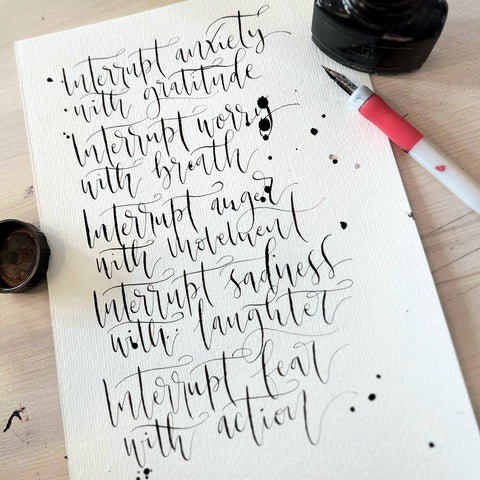 Interrupt anxiety
with gratitude
Interrupt worry
with breath
Interrupt anger
with movement
Interrupt sadness
with laughter
Interrupt fear
with action